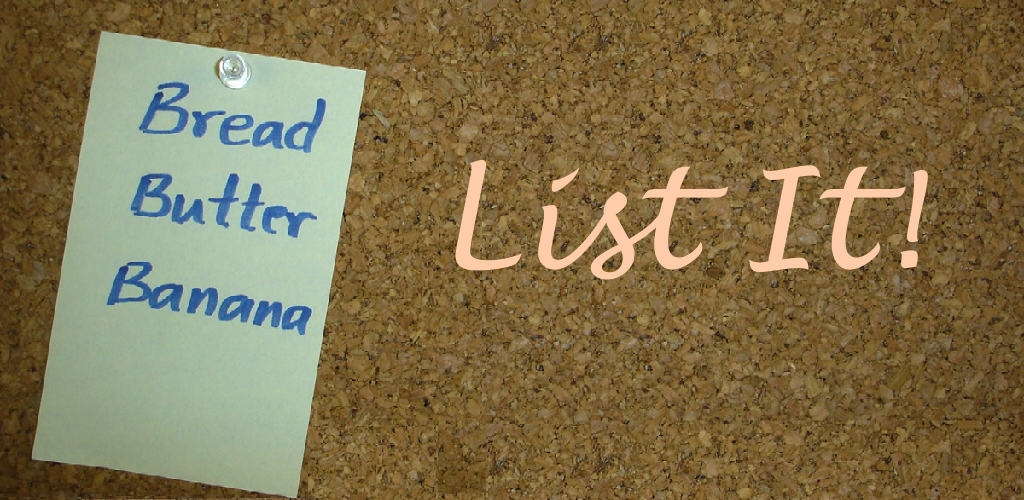 Bread
Butter
Banana
List It!